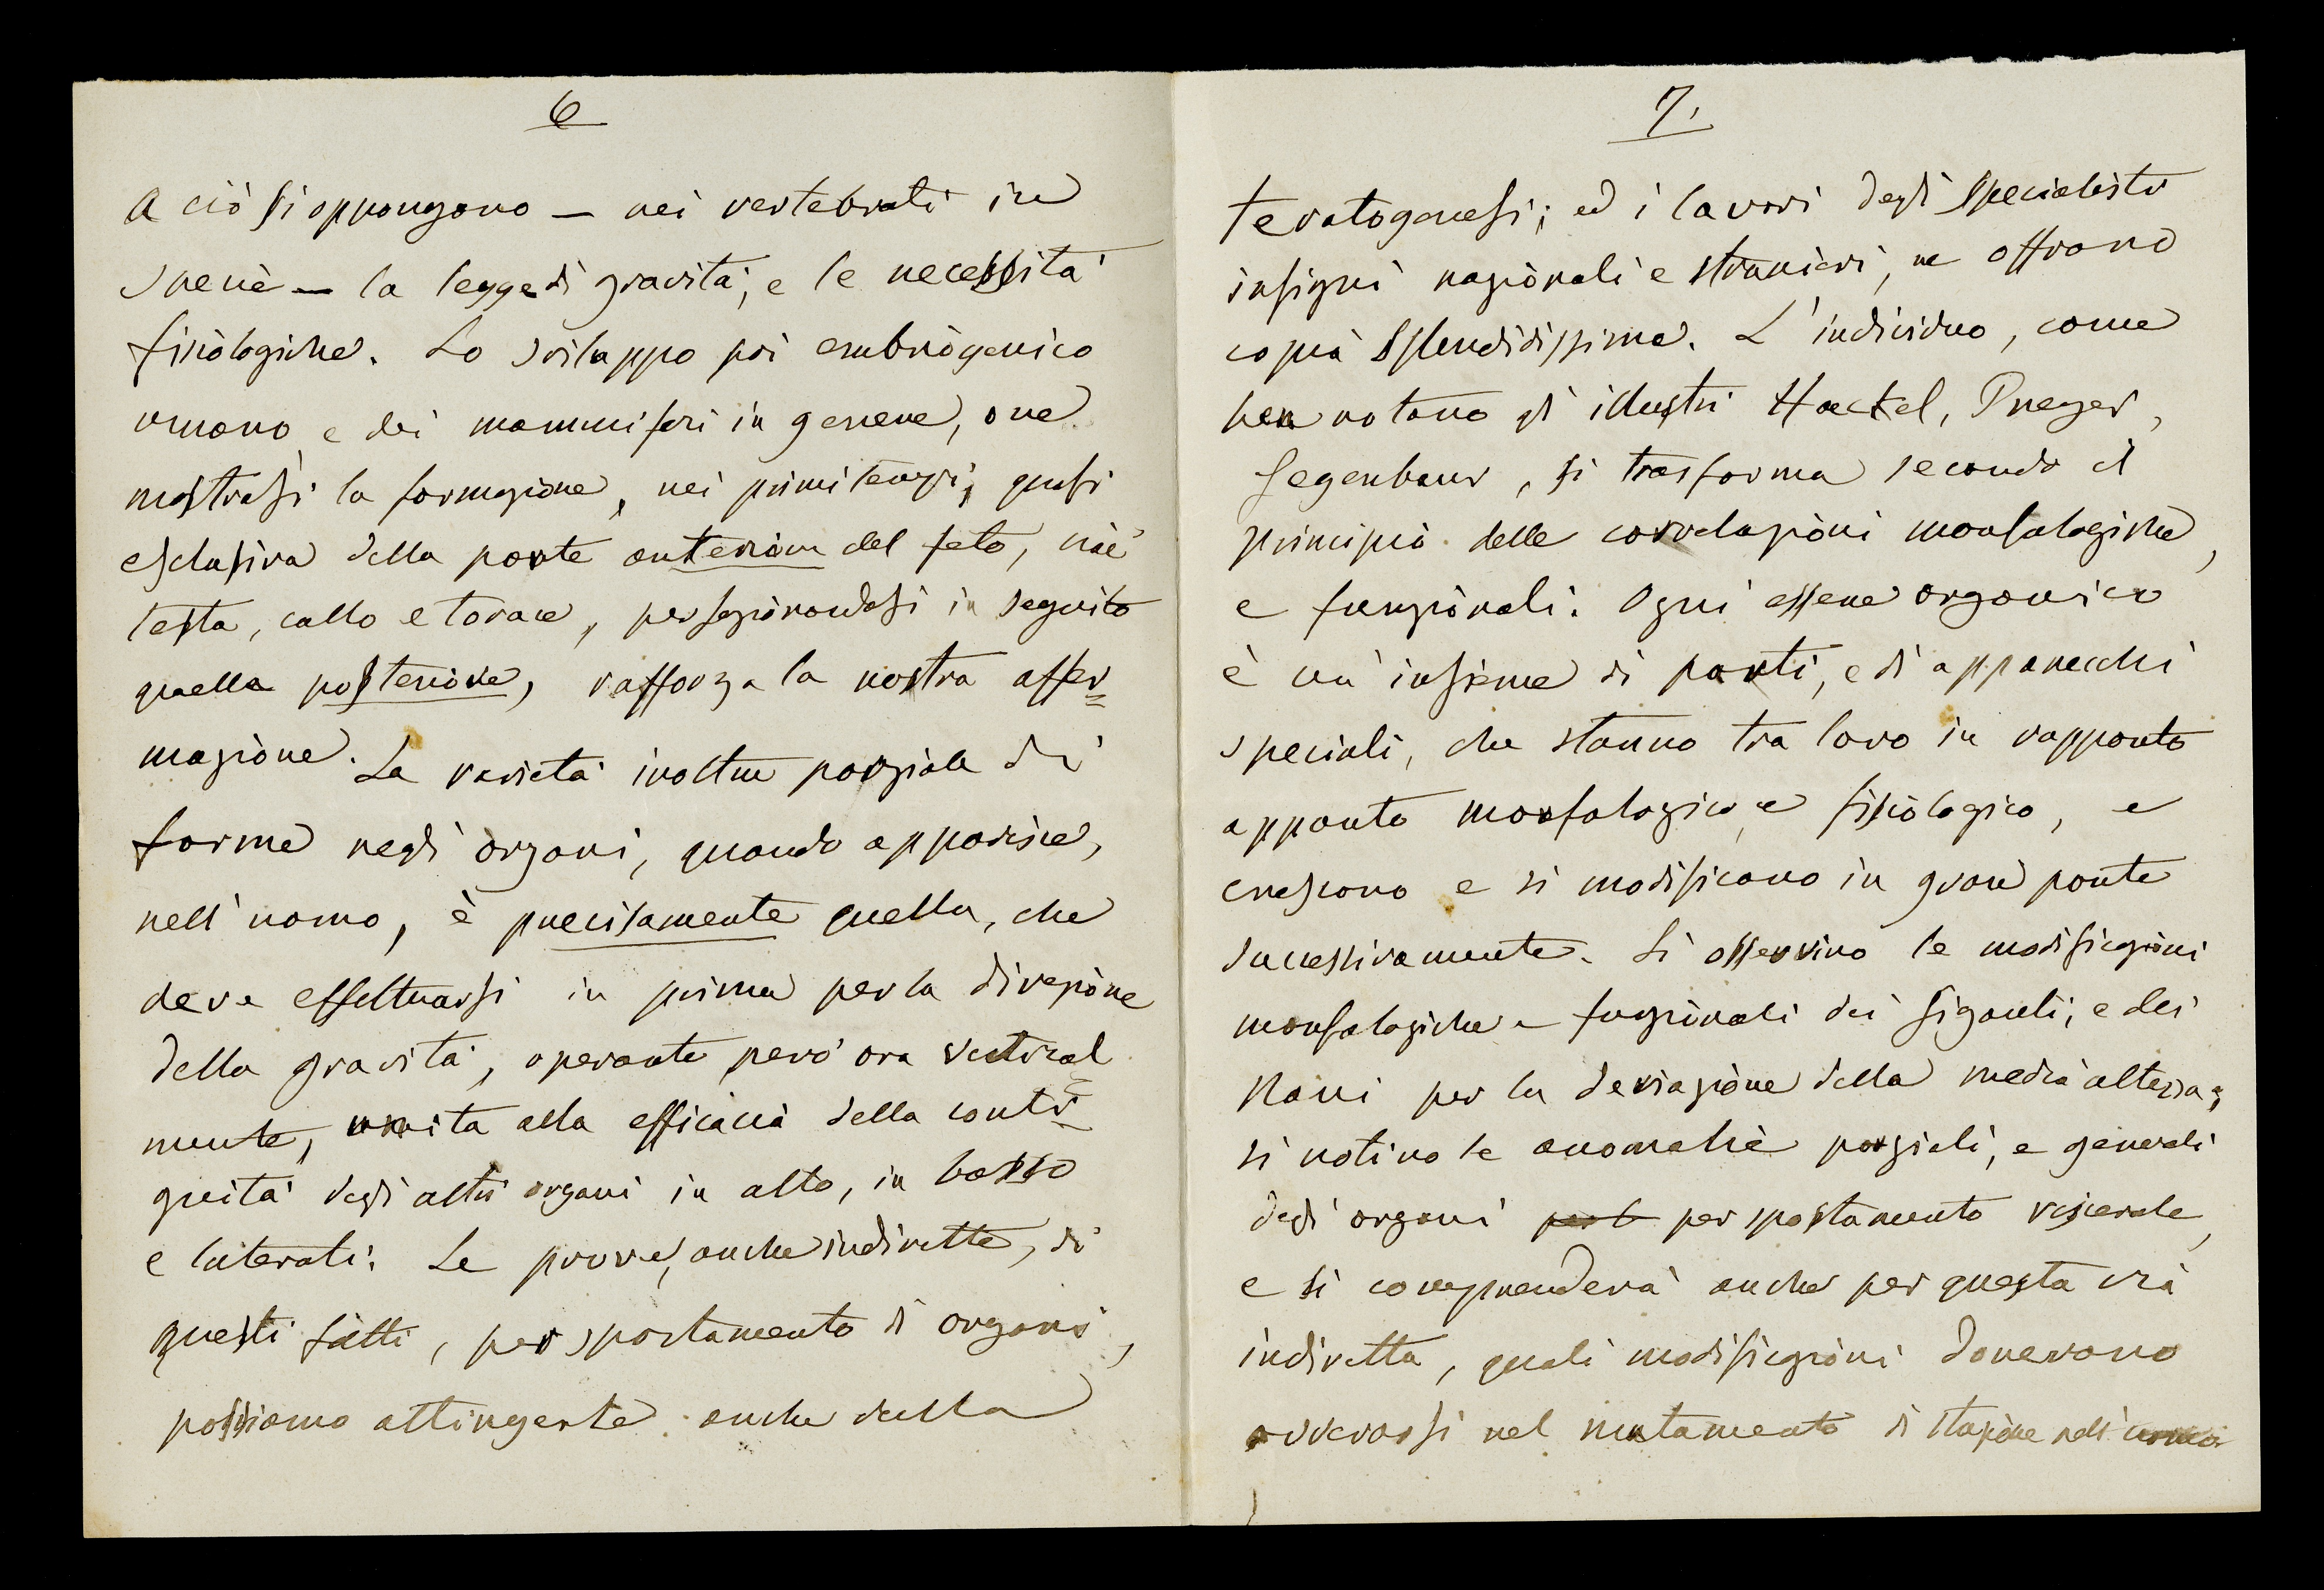 6
A ciò si oppongono — nei vertebrati in
specie — la legge di gravità, e le necessità
fisiologiche. Lo sviluppo poi embriogenico
umano e dei mammiferi in genere, ove
mostrasi la formazione, nei primi tempi, quasi
esclusiva della parte anteriore del feto, cioè
testa, collo e torace, perfezionandosi in seguito
quella posteriore, rafforza la nostra affer=
mazione. La varietà inoltre parziale di
forme negli organi, quando apparisce,
nell'uomo, è precisamente quella, che
deve effettuarsi in prima per la direzione
della gravità, operante però ora vertical
mente, unita alla efficacia della conti=
guità degli altri organi in alto, in basso
e laterali. Le prove, anche indirette, di
questi fatti, per spostamento di organi,
possiamo attingerle anche dalla
7.
teratogenesi; ed i lavori degli specialisti
insigni nazionali e stranieri, ne offrono
copia splendidissima. L'individuo, come
ben notano gli illustri Haeckel, Preyer,
Gegenbaur, si trasforma secondo il
principio delle correlazioni morfologiche,
e funzionali. Ogni essere organico
è un insieme di parti, e di apparecchi
speciali, che stanno tra loro in rapporto
appunto morfologico, e fisiologico, e
crescono e si modificano in gran parte
successivamente. Si osservino le modificazioni
morfologiche e funzionali dei Giganti, e dei
Nani per la deviazione della media altezza;
si notino le anomalie parziali, e generali
degli organi per spostamento viscerale,
e si comprenderà anche per questa via
indiretta, quali modificazioni doverono
avverarsi nel mutamento di stazione nell' uomo